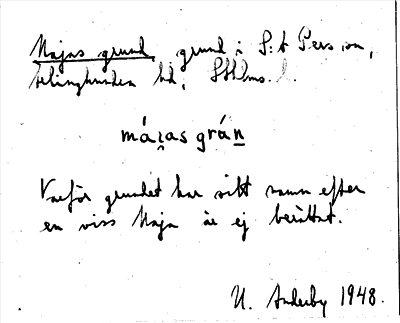 Majas grund, grund i S:t Persson,
hd, Sthlms l.
máɀas grán
Varför grundet har sitt namn efter
en viss Maja är ej berättat.
N. Anderby 1948.